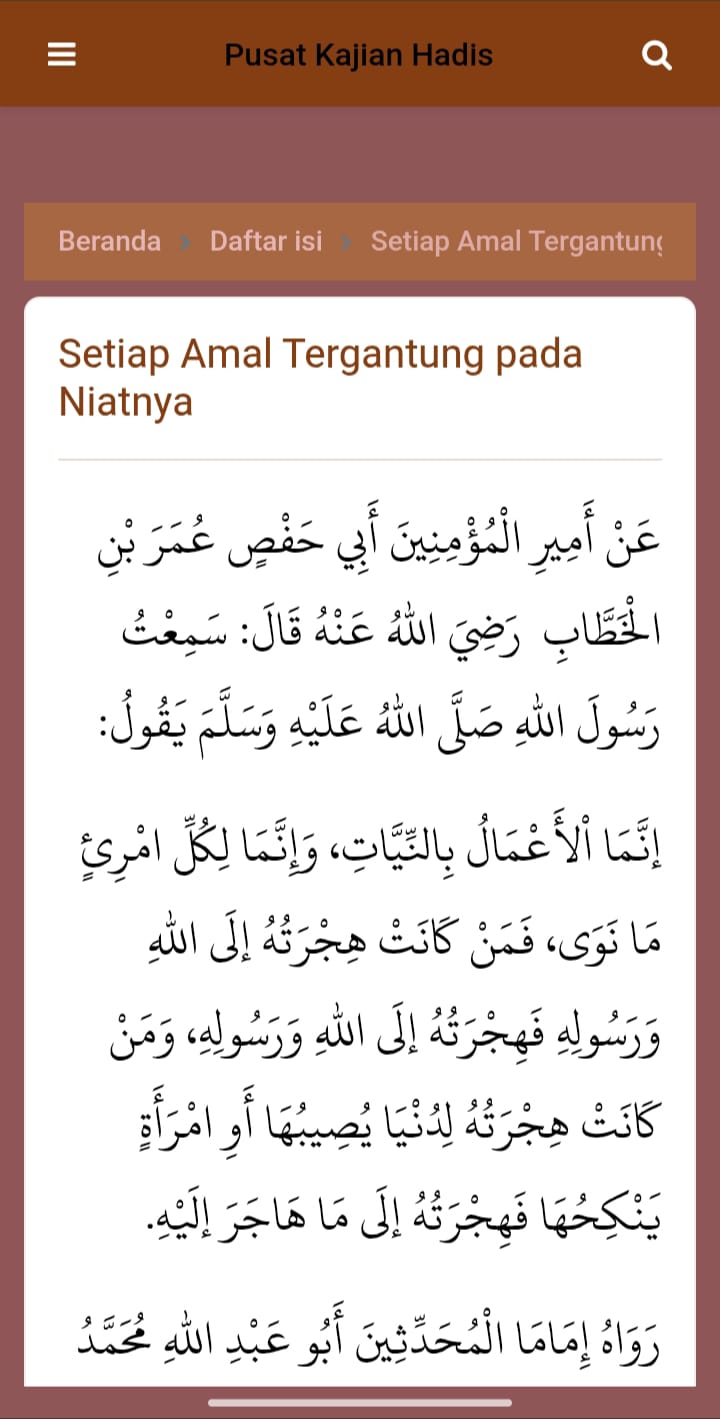 Pusat Kajian Hadis
Beranda › Daftar isi › Setiap Amal Tergantung
Setiap Amal Tergantung pada
Niatnya
عَنْ أَمِيرِ الْمُؤْمِنِينَ أَبِي حَفْصٍ عُمَرَ بْنِ
الْخَطَّابِ رَضِيَ اللهُ عَنْهُ قَالَ: سَمِعْتُ
رَسُولَ اللهِ صَلَّى اللهُ عَلَيْهِ وَسَلَّمَ يَقُولُ:
إِنَّمَا ألأَعْمَالُ بِالنِّيَّاتِ، وَإِنَّمَا لِكُلِّ امْرِئٍ
مَا نَوَى، فَمَنْ كَانَتْ هِجْرَتُهُ إِلَى اللهِ
وَرَسُولِهِ فَهِجْرَتُهُ إِلَى اللهِ وَرَسُولِهِ، وَمَنْ
كَانَتْ هِجْرَتُهُ لِدُنْيَا يُصِيبُهَا أَوِ امْرَأَةٍ
يَنْكِحُهَا فَهِجْرَتُهُ إِلَى مَا هَاجَرَ إِلَيْهِ.
رَوَاهُ إِمَامَا الْمُحَدِّثِينَ أَبُو عَبْدِ اللهِ مُحَمَّدُ